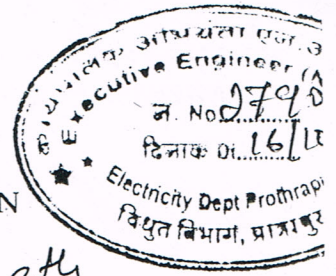 कार्यपालक अभियंता एवं
Executive Engineer (A
न. No. 279
दिनांक Dt. 16/1
Electricity Dept Prothrap
विधुत विभाग, प्रात्रापुर
N
th